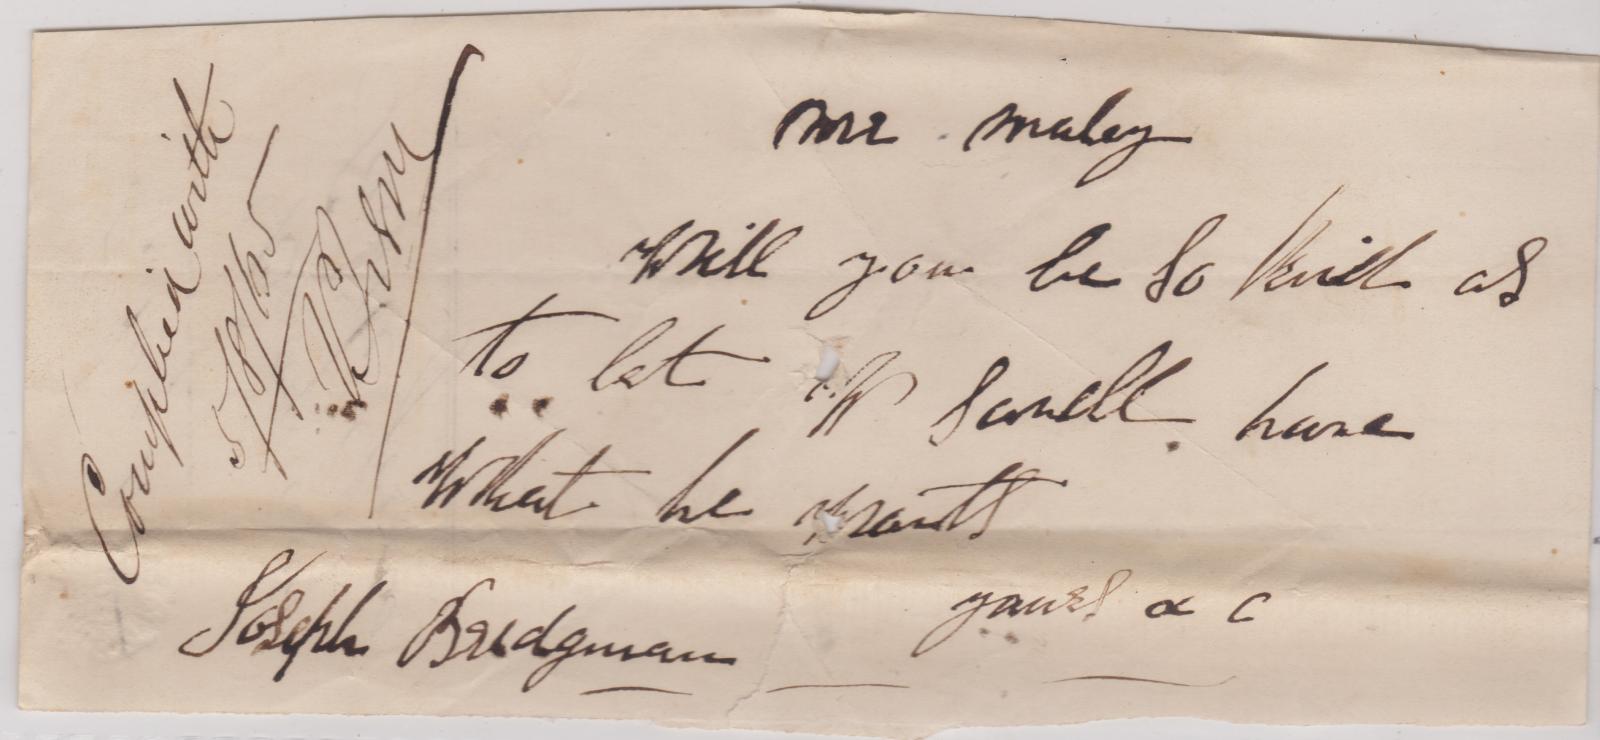 Mr Maley
Will you be so kind as
to let W Sewell have
What he wants
yours & c
Joseph Bridgman
Complied with